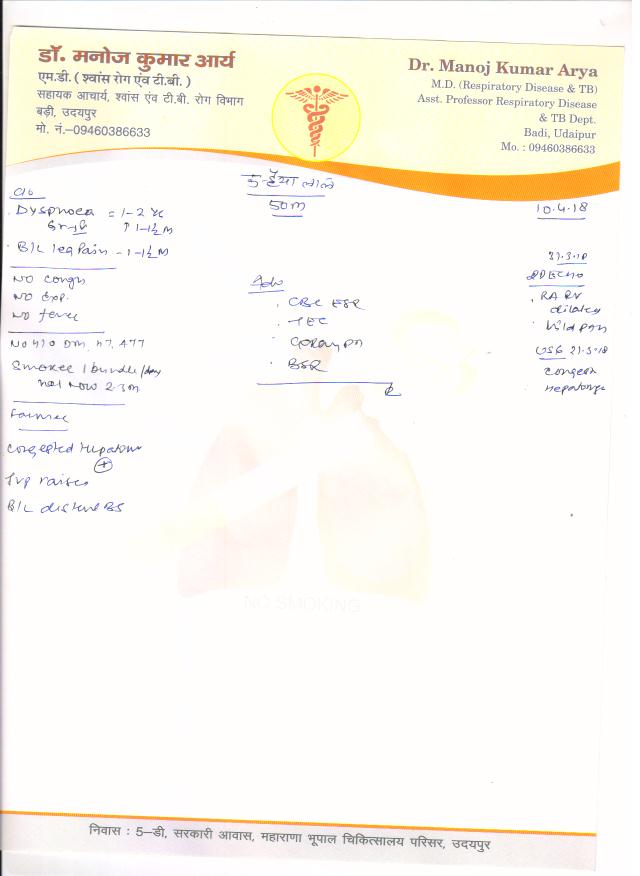 डॉ. मनोज कुमार आर्य
एम.डी. ( श्वांस रोग एंव टी.बी. )
सहायक आचार्य, श्वांस एंव टी.बी. रोग विभाग
बड़ी, उदयपुर
मो. नं.–09460386633
Dr. Manoj Kumar Arya
M.D. (Respiratory Disease & TB)
Asst. Professor Respiratory Disease
& TB Dept.
Badi, Udaipur
Mo. : 09460386633
लाल
50m
10.4.18
C/o
Dyspnoea = 1-2 Yr
↑ 1-1½ M
B/L leg Pain - 1-1½ M
NO Cough
NO Exp.
NO fever
NO H/O DM, HT, ATT
Smoker 1 bundle/day
not now 2-3m
Farmer
Congested Hepatom
+
JVP raised
B/L BS
Adv
CBC ESR
TEC
BSR
2D ECHO
RA RV
dilated
Mild PAH
USG 21-3-18
NO SMOKING
निवास : 5–डी, सरकारी आवास, महाराणा भूपाल चिकित्सालय परिसर, उदयपुर